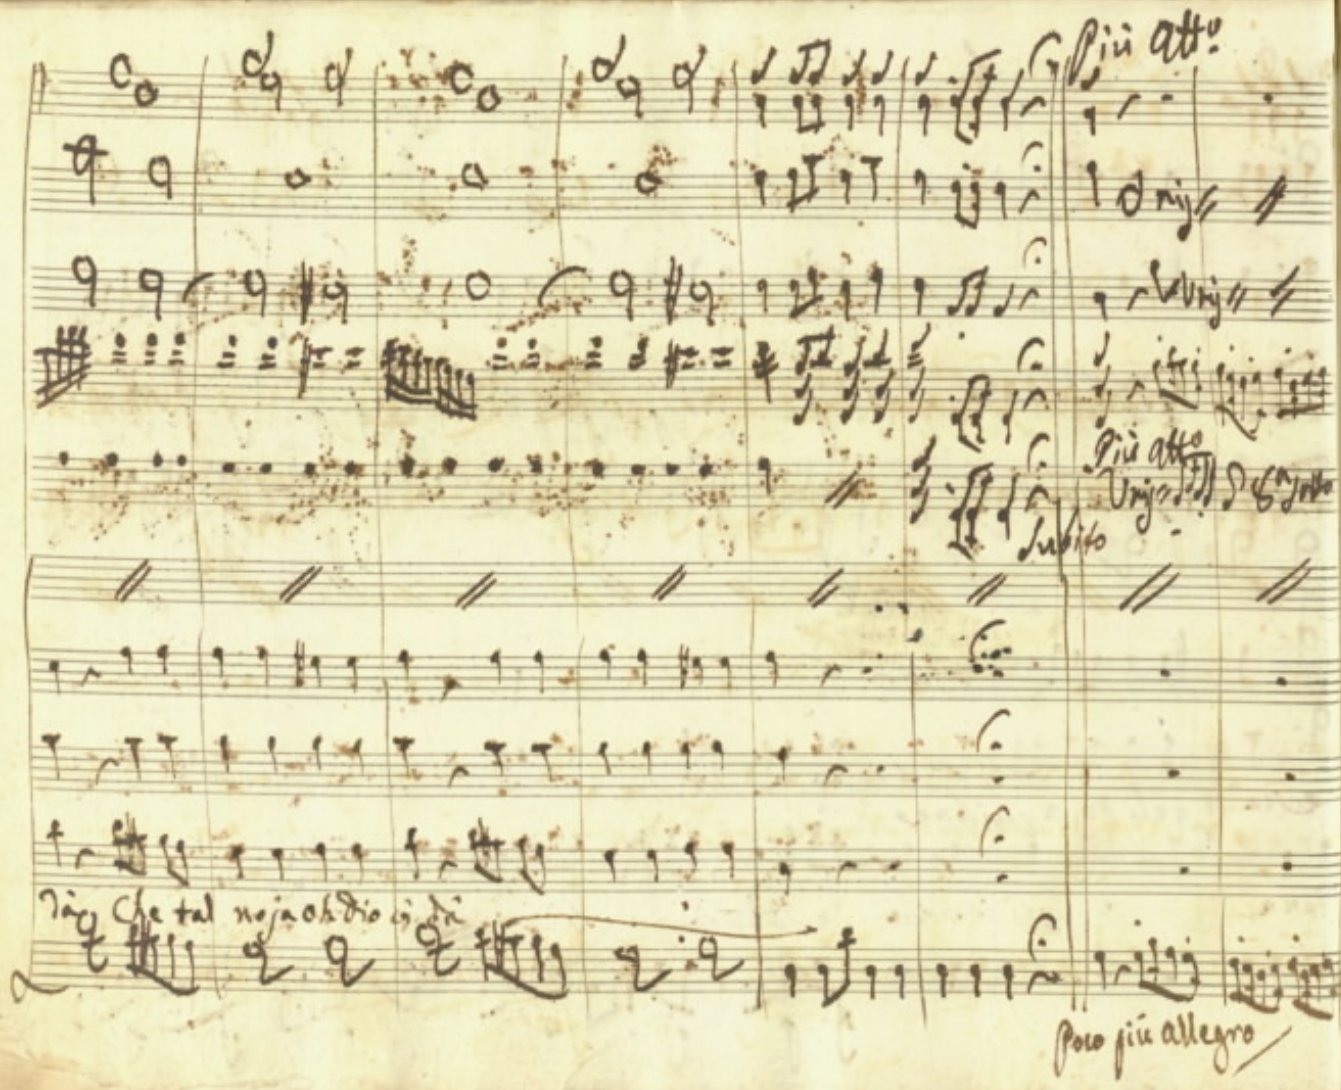 Più All:º
unis
Più All:º
Unis
Subito
Che tal noja oh dio ci dà
Poco più allegro